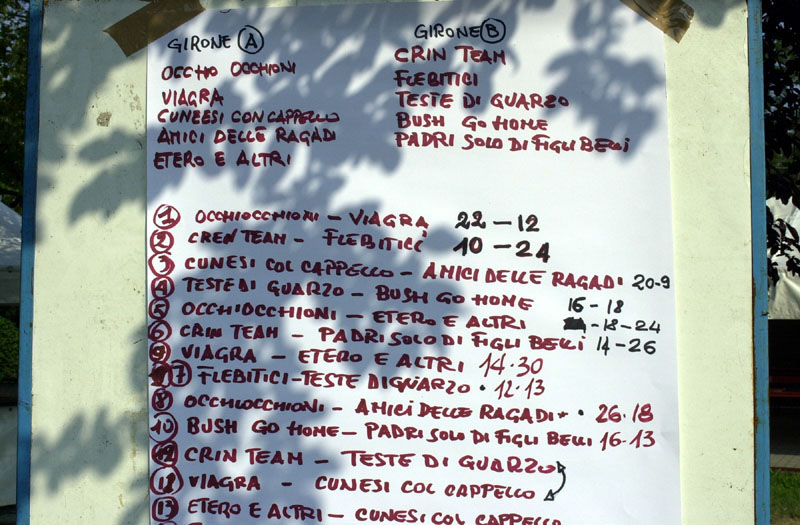 GIRONE A
OCCHIO OCCHIONI
VIAGRA
CUNEESI CON CAPPELLO
AMICI DELLE RAGADI
ETERO E ALTRI
GIRONE B
CRIN TEAM
FLEBITICI
TESTE DI QUARZO
BUSH GO HOME
PADRI SOLO DI FIGLI BELLI
1 OCCHIOCCHIONI - VIAGRA 22-12
2 CREN TEAM - FLEBITICI 10-24
3 CUNESI COL CAPPELLO - AMICI DELLE RAGADI 20-9
4 TESTE DI QUARZO - BUSH GO HOME 16-18
5 OCCHIOCCHIONI - ETERO E ALTRI -18-24
6 CRIN TEAM - PADRI SOLO DI FIGLI BELLI 14-26
9 VIAGRA - ETERO E ALTRI 14.30
7 FLEBITICI-TESTE DI QUARZO • 12.13
8 OCCHIOCCHIONI - AMICI DELLE RAGADI • 26.18
10 BUSH GO HOME - PADRI SOLO DI FIGLI BELLI 16-13
12 CRIN TEAM - TESTE DI QUARZO
11 VIAGRA - CUNESI COL CAPPELLO
13 ETERO E ALTRI - CUNESI COL CAPPELLO